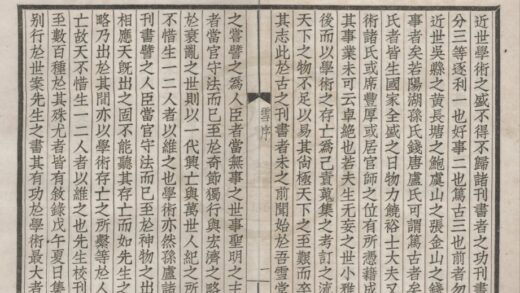 近世學術之盛不得不歸諸刊書者之功
分三等逐利一也好事二也篤古三也前者勿
近世吳縣之黃長塘之鮑虞山之張金山之錢
事者矣若陽湖孫氏錢唐盧氏可謂篤古者矣
氏者皆生國家全盛之日物力饒裕士大夫又
術諸氏或席豐厚或居官師之位有所憑藉成
其事業未可云卓絕也若夫生无妄之世小雅
後而以學術之存亡爲己責蒐集之考訂之流
天下之物不足以易其尚極天下之至艱而卒
其志此於古之刊書者未之前聞始於吾雪堂
雪序
一
之嘗譬之爲人臣者當無事之世事聖明之主
者當官守法而已至於奇節獨行與宏濟之略
於衰亂之世則以一代興亡與萬世人紀之所
不惜生一二人者以維之也學術亦然孫盧諸
刊書譬之人臣當官守法而已至於神物之出
相應天旣出之固不能聽其存亡而如先生之
略乃出於其間亦以學術存亡之所繫等於人
亡故天不惜生一二人者以維之也先生校刊
至數百種於其殊尤者皆有敘錄戊午夏日集
別行於世案先生之書其有功於學術最大者